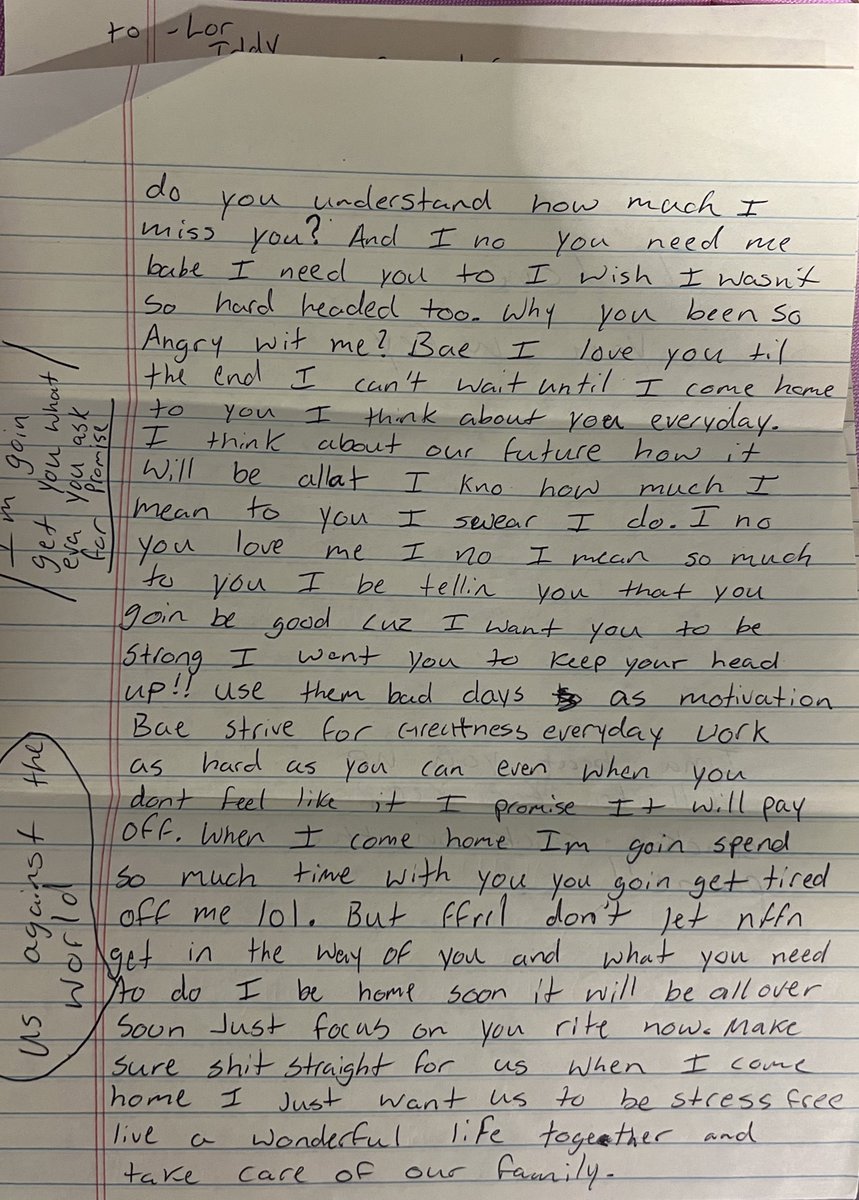 to - Lor
Iddy
do you understand how much I
miss you? And I no you need me
babe I need you to I wish I wasn't
so hard headed too. Why you been so
Angry wit me? Bae I love you til
the end I can't wait until I come home
to you I think about you everyday.
I think about our future how it
will be allat I kno how much I
mean to you I swear I do. I no
you love me I no I mean so much
to you I be tellin you that you
goin be good cuz I want you to be
strong I want you to keep your head
up!! use them bad days as motivation
Bae strive for Greatness everyday work
as hard as you can even when you
dont feel like it I promise It will pay
off. When I come home Im goin spend
so much time with you you goin get tired
off me lol. But ffrll don't let nffn
get in the way of you and what you need
to do I be home soon it will be all over
soon Just focus on you rite now. Make
sure shit straight for us when I come
home I Just want us to be stress free
live a wonderful life together and
take care of our family.
I'm goin
get you what
eva you ask
for promise
us against the
world